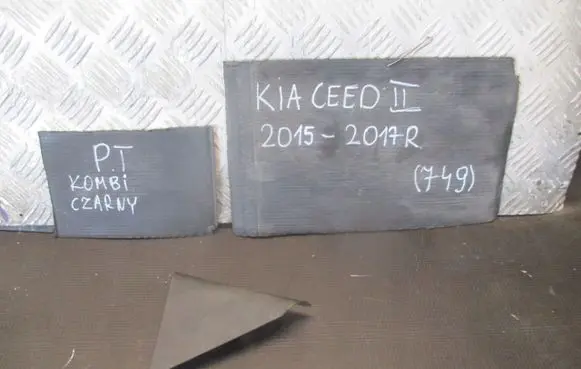 P.T
KOMBI
CZARNY
KIA CEED II
2015-2017R
(749)